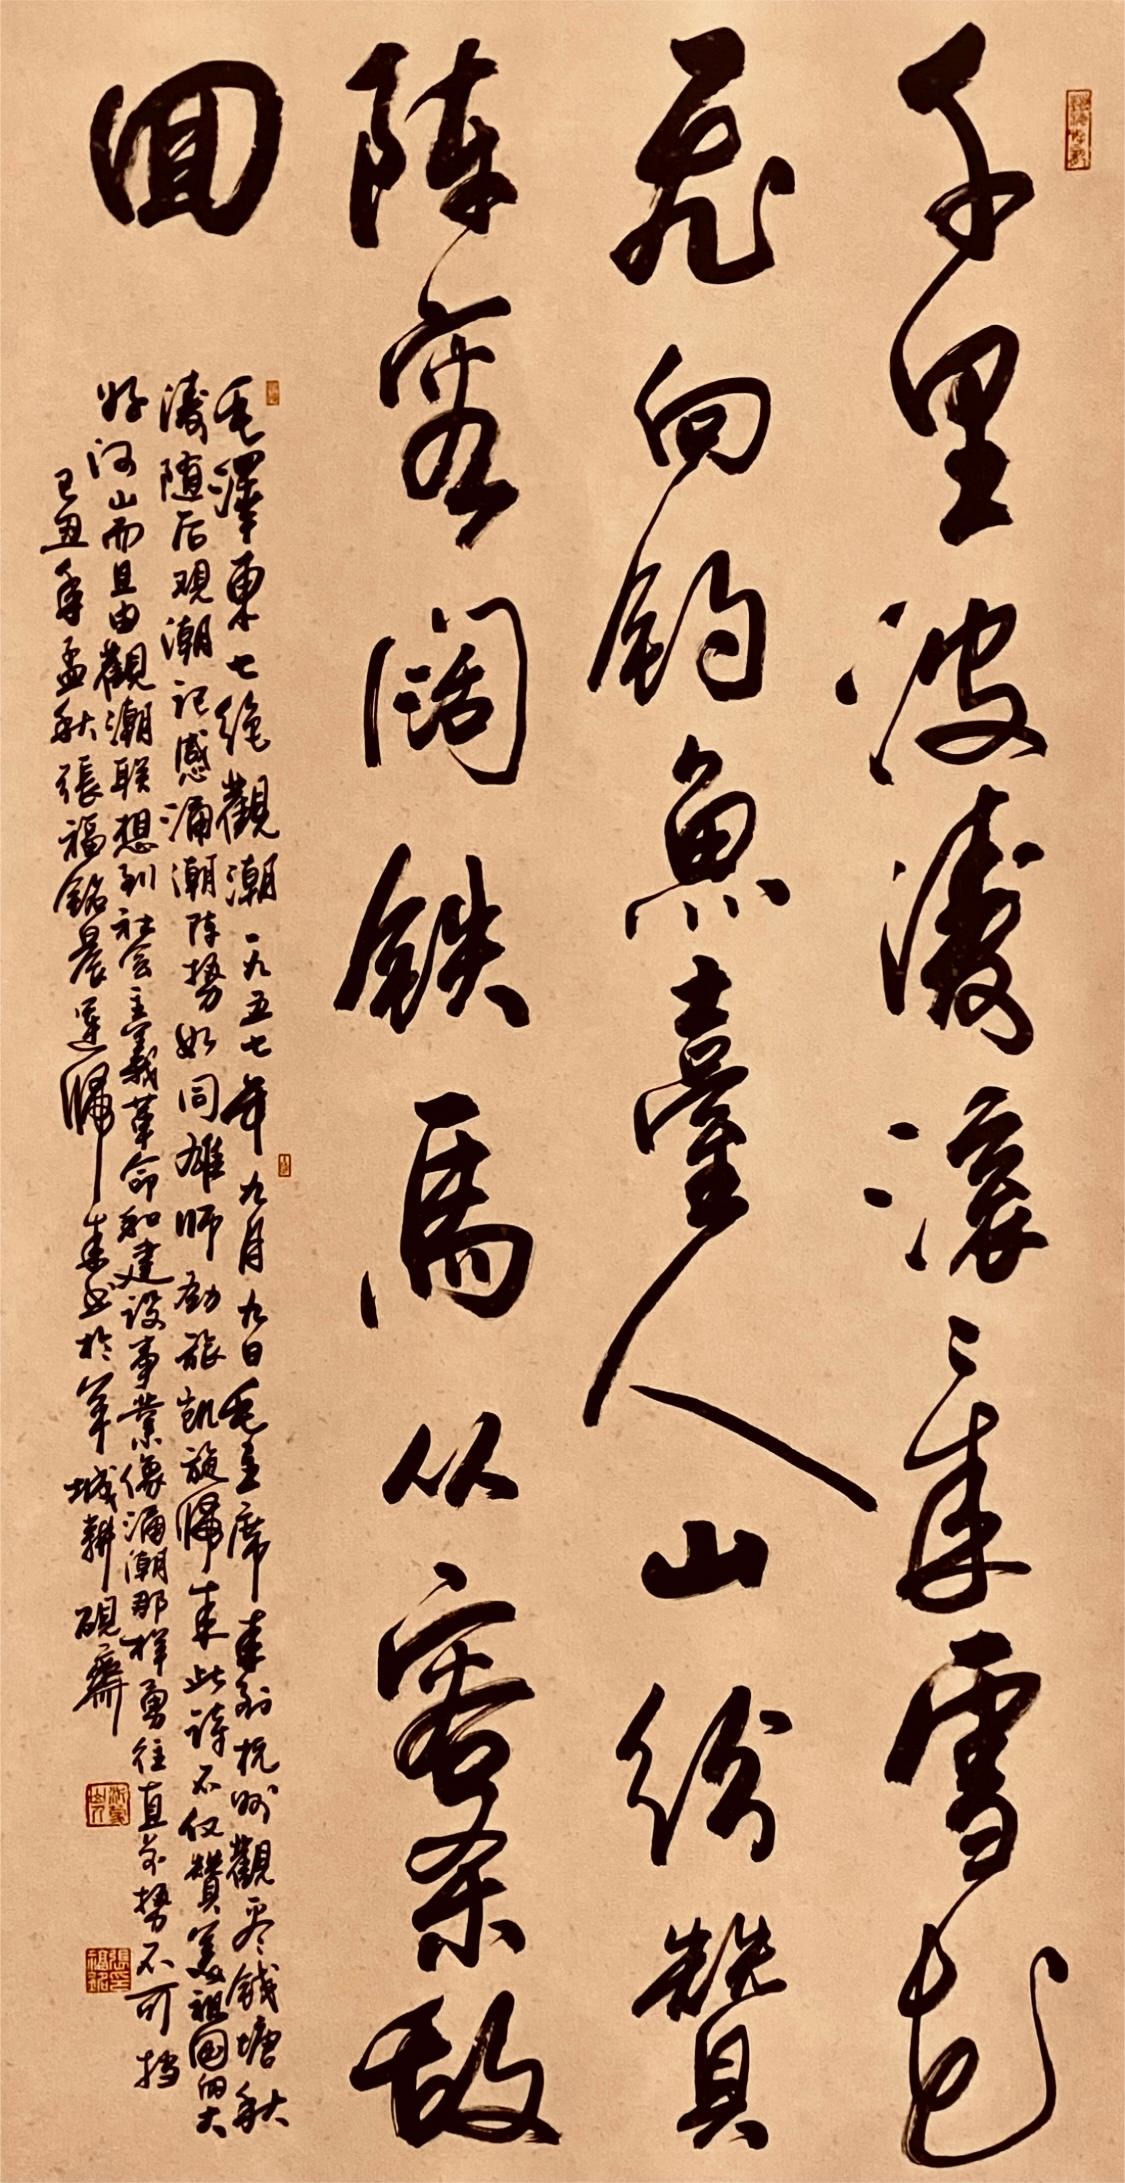 千里波涛滚＝来雪花
飞向钓鱼臺人山纷赞
阵容阔铁马从容杀敌
回
毛泽东七绝觀潮一九五七年九月九日毛主席来到杭州觀看钱塘秋
涛随后观潮记感涌潮阵势如同雄师劲旅凯旋归来此诗不仅赞美祖国的大
好河山而且由觀潮联想到社会主義革命和建设事業像涌潮那样勇往直前势不可挡
己丑年孟秋張福銘晨運归来书於羊城耕砚斋
張福銘